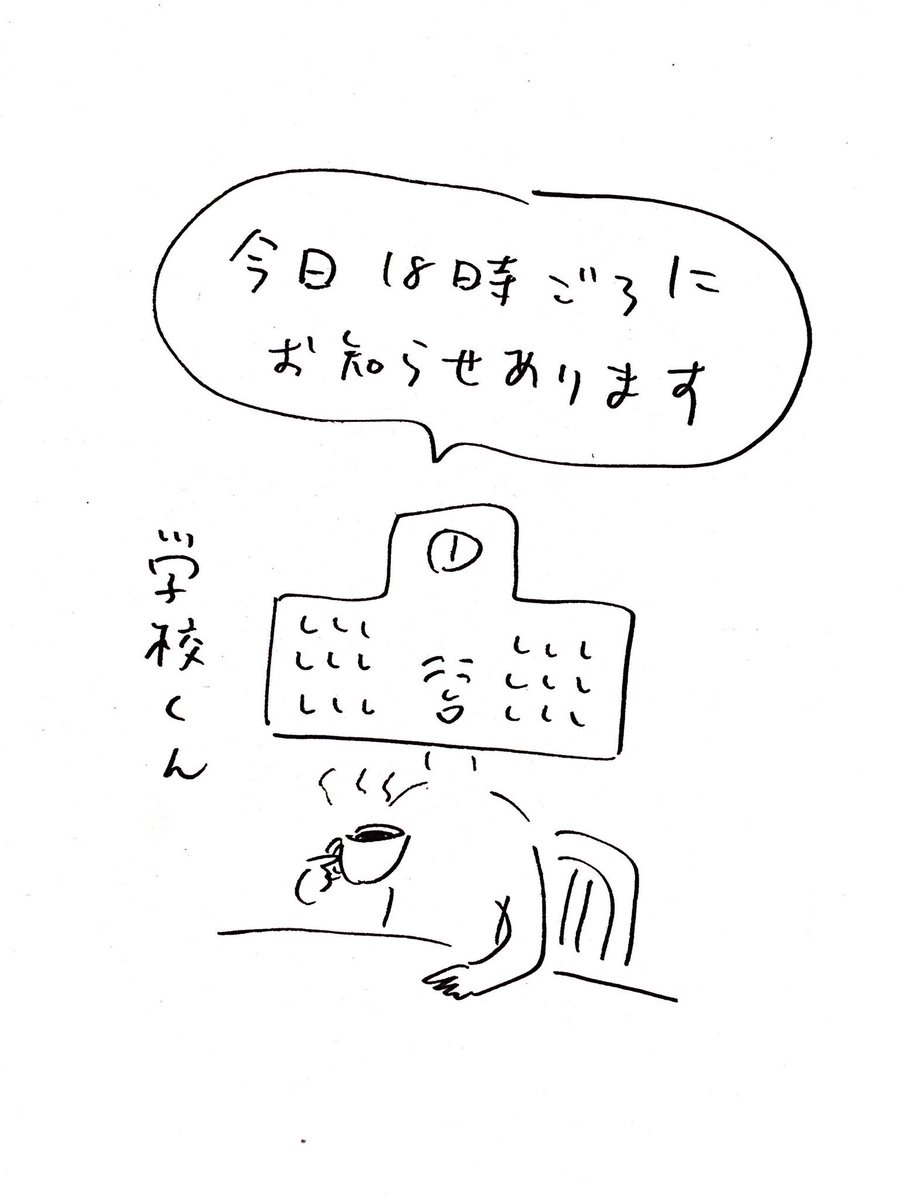 今日18時ごろに
お知らせあります
学校くん